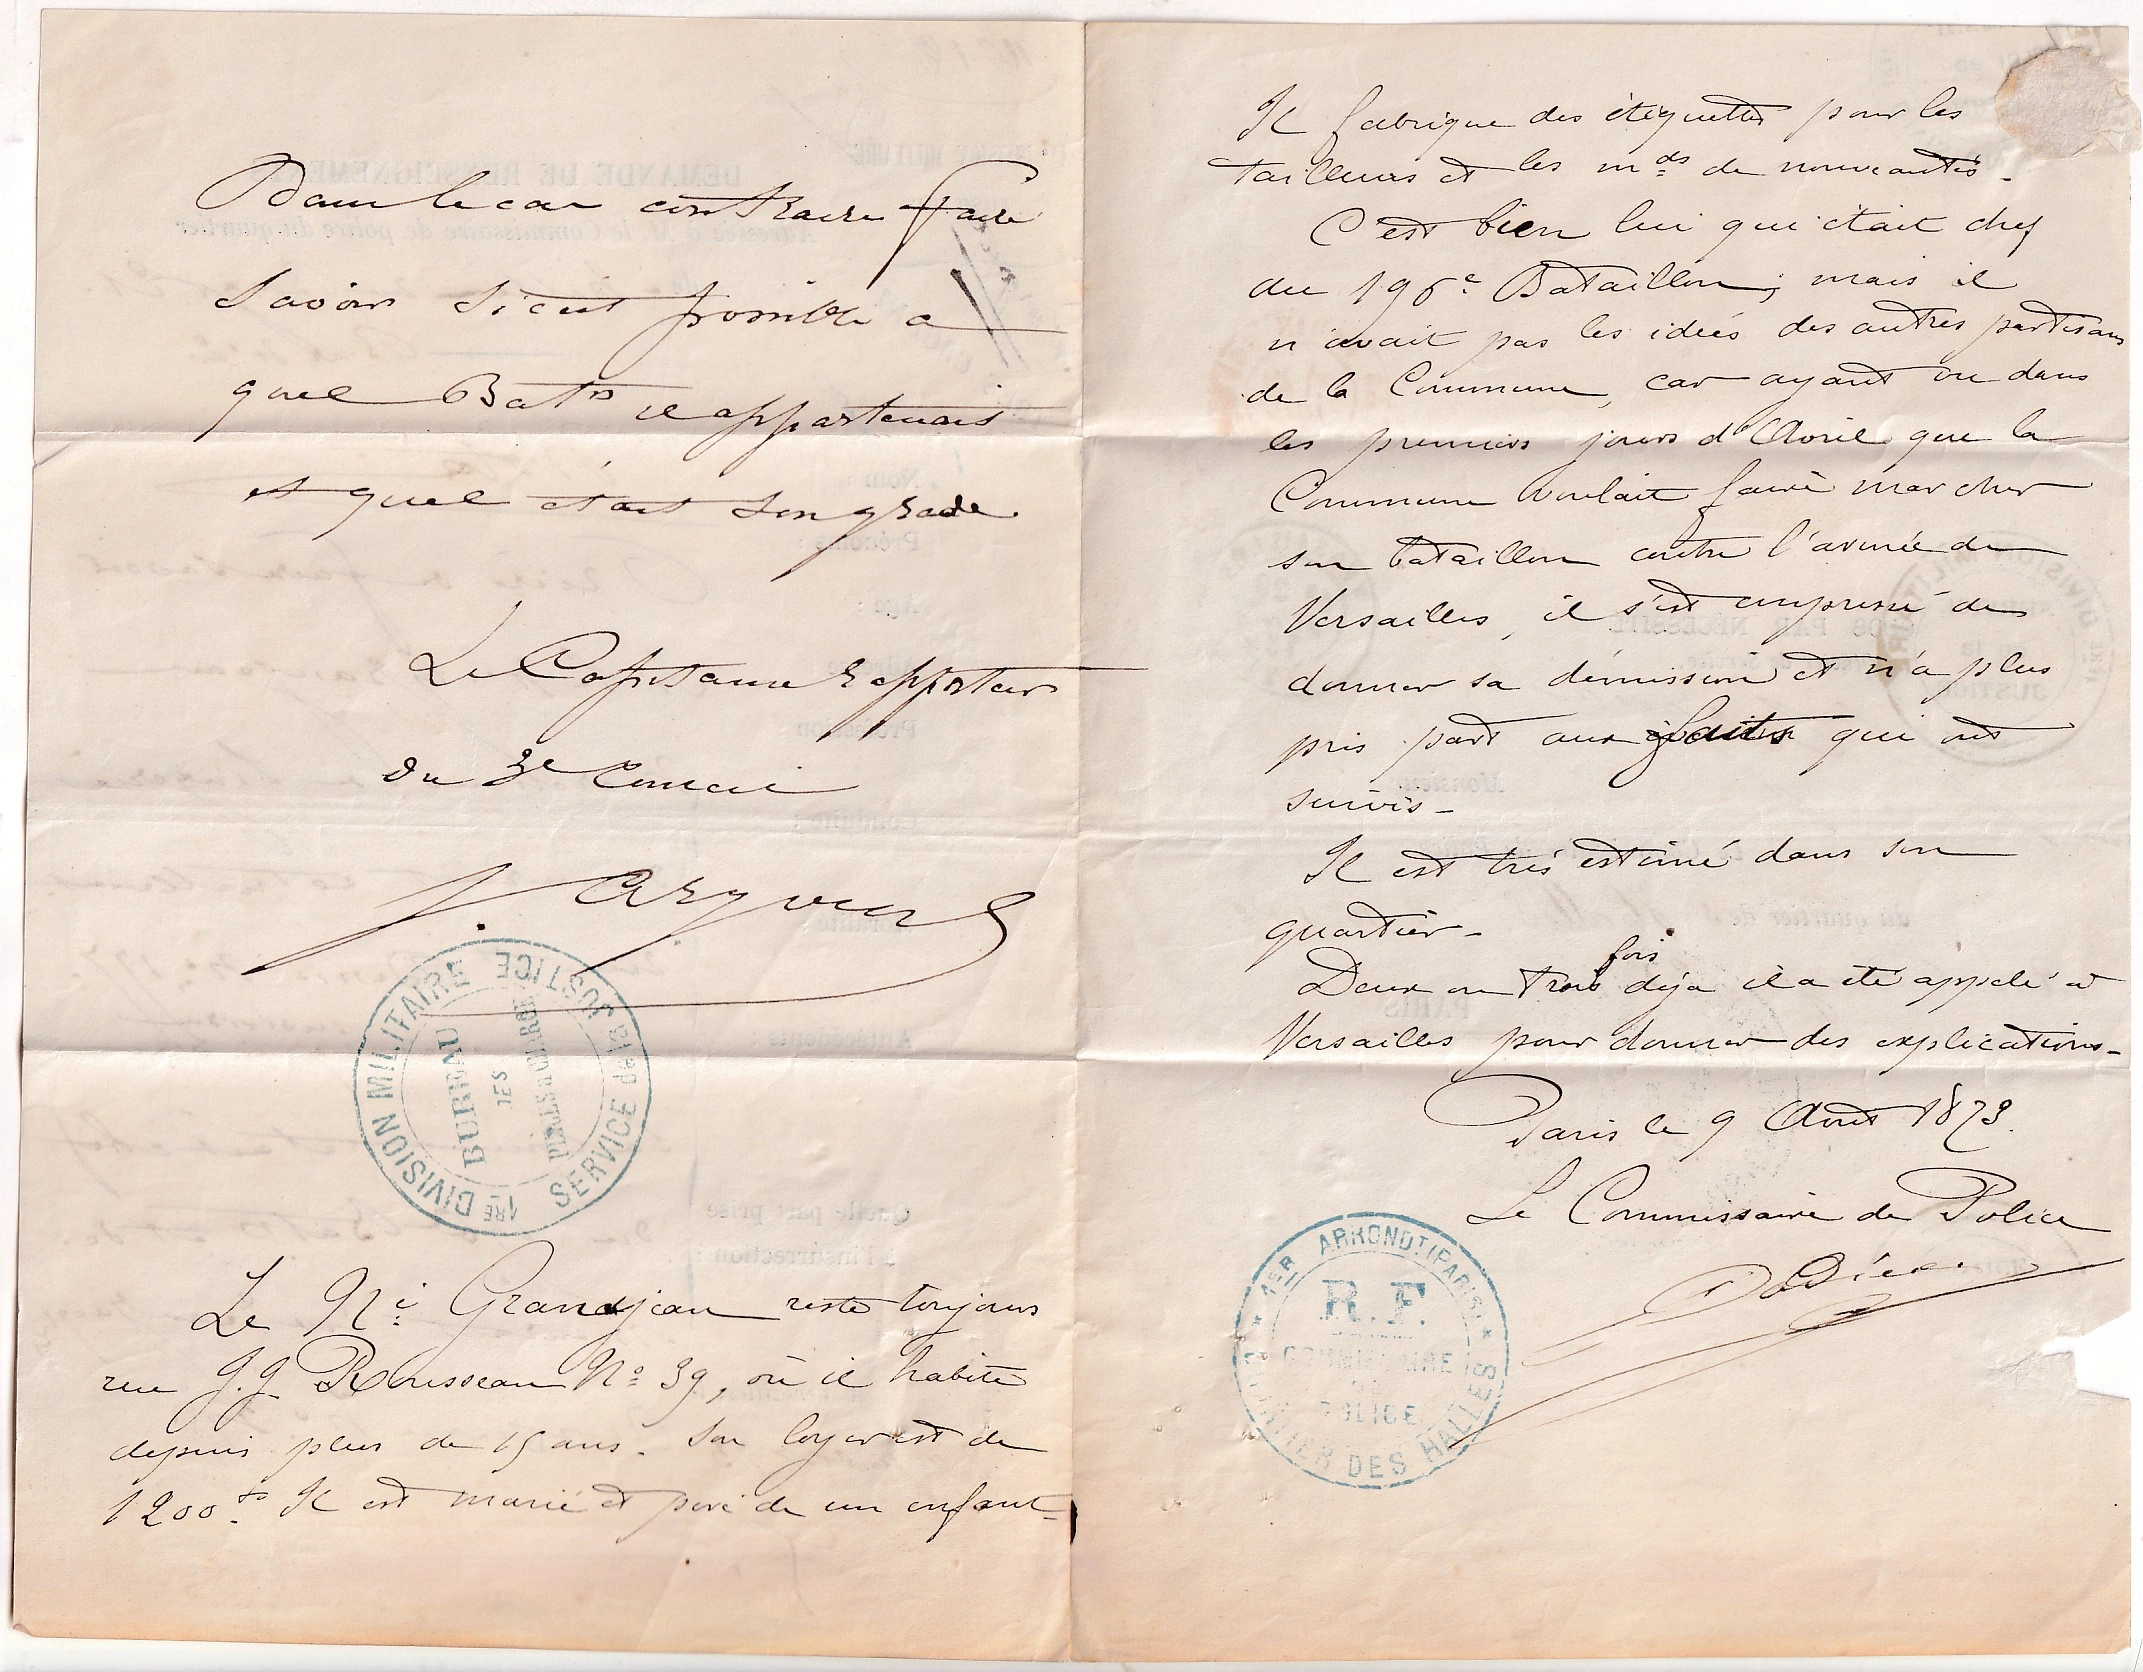 Dans le cas contraire faire
savoir s'il est possible a
quel Bat.on il appartenait
et quel était son grade
Le Capitaine rapporteur
du 3e Conseil
1RE DIVISION MILITAIRE
SERVICE de la JUSTICE
BUREAU
DES
Le Né Grandjean reste toujours
rue J.J. Rousseau No 39, où il habite
depuis plus de 15 ans. Son loyer est de
1200 fs. Il est marié et père de un enfant-
Il fabrique des étiquettes pour les
tailleurs et les mds de nouveautés-
C'est bien lui qui était chef
du 196e Bataillon; mais il
n'avait pas les idées des autres partisans
de la Commune, car ayant vu dans
les premiers jours d'Avril que la
Commune voulait faire marcher
son bataillon contre l'armée de
Versailles, il s'est empressé de
donner sa démission et n'a plus
pris part aux faits qui ont
suivis-
Il est très estimé dans son
quartier-
Deux ou trois fois déja il a été appelé à
Versailles pour donner des explications-
Paris le 9 Aout 1873.
Le Commissaire de Police
1ER ARRONDT (PARIS)
R.F.
COMMISSAIRE
DE
POLICE
QUARTIER DES HALLES